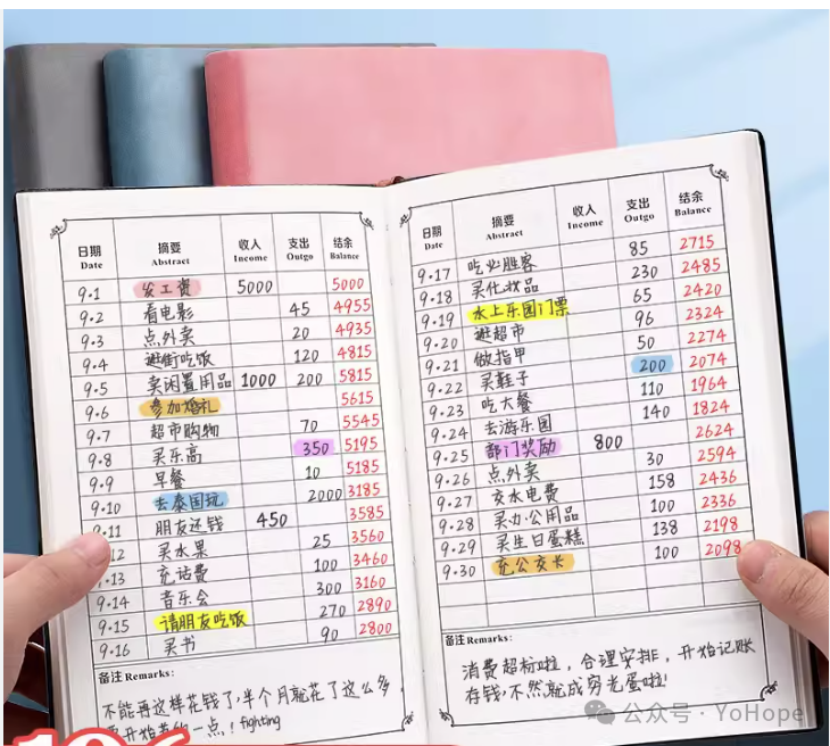 日期 摘要 收入 支出 结余
Date Abstract Income Outgo Balance
9.1 发工资 5000 5000
9.2 看电影 45 4955
9.3 点外卖 20 4935
9.4 逛街吃饭 120 4815
9.5 卖闲置用品 1000 200 5815
9.6 参加婚礼 5615
9.7 超市购物 70 5545
9.8 买乐高 350 5195
9.9 早餐 10 5185
9.10 去泰国玩 2000 3185
9.11 朋友还钱 450 3585
12 买水果 25 3560
.13 充话费 100 3460
9.14 音乐会 300 3160
9.15 请朋友吃饭 270 2890
9.16 买书 90 2800
备注Remarks:
不能再这样花钱了,半个月就花了这么多,
开始 一点！fighting
日期 摘要 收入 支出 结余
Date Abstract Income Outgo Balance
9.17 吃必胜客 85 2715
9.18 买化妆品 230 2485
9.19 水上乐园门票 65 2420
9.20 逛超市 96 2324
9.21 做指甲 50 2274
9.22 买鞋子 200 2074
9.23 吃大餐 110 1964
9.24 去游乐园 140 1824
9.25 部门奖励 800 2624
9.26 点外卖 30 2594
9.27 交水电费 158 2436
9.28 买办公用品 100 2336
9.29 买生日蛋糕 138 2198
9.30 充公交卡 100 2098
备注Remarks:
消费超标啦，合理安排，开始记账
存钱,不然就成穷光蛋啦!
公众号 · YoHope